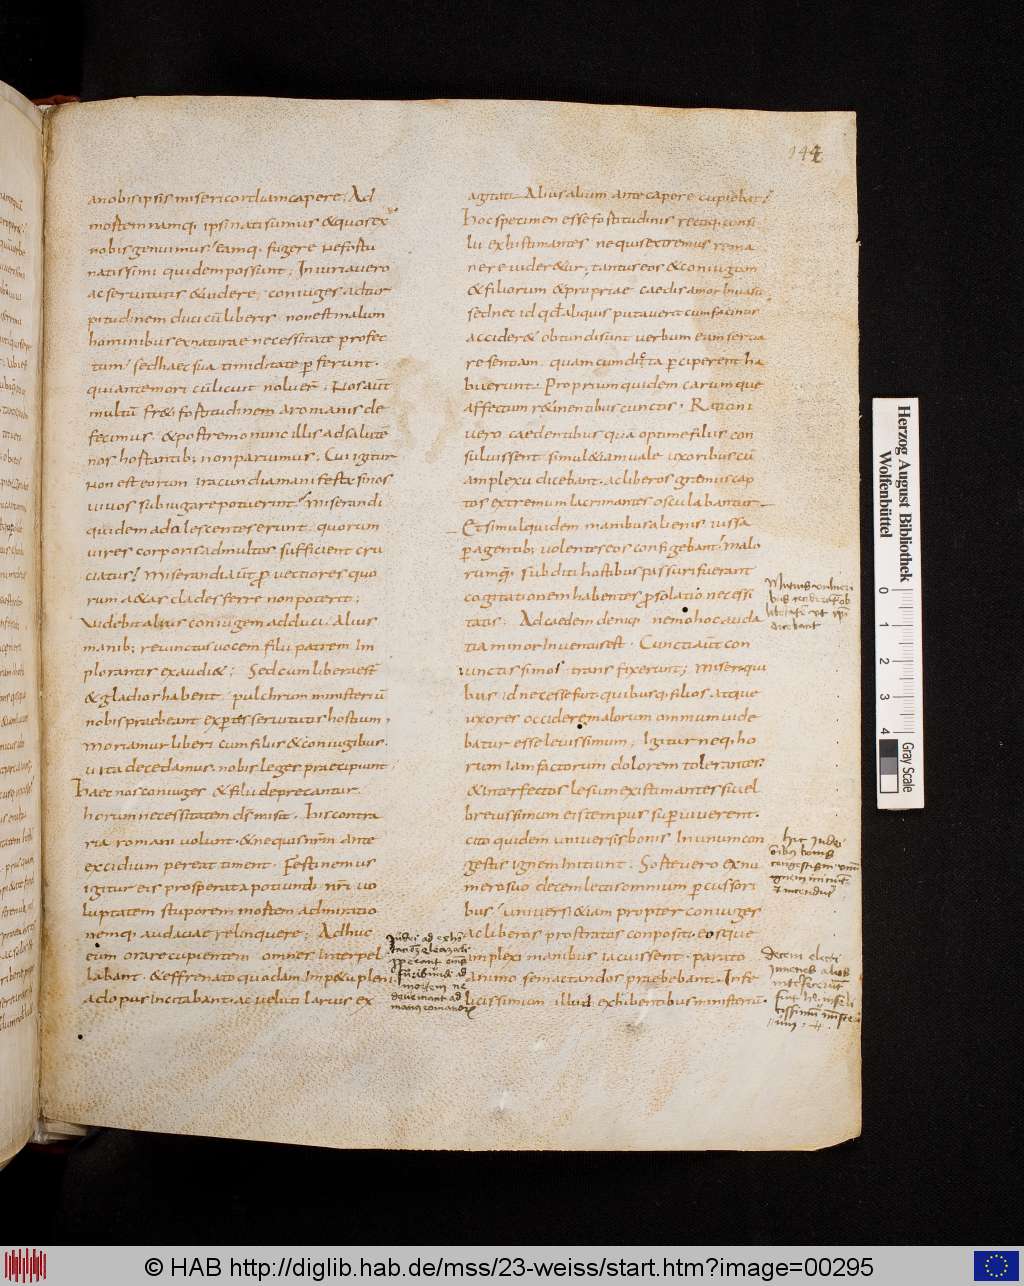 144
a nobis ipsis misericordiam capere; Ad
mortem namq; ipsi nati sumus & quos ex
nobis genuimus; eamq; fugere nefortu
natissimi quidem possunt; Iniuria vero
ac servitutis & videre coniuges ad tur
pitudinem duci cū liberis non est malum
hominibus ex naturae necessitate profec
tum; sed haec sua timiditate p ferunt.
qui ante mori cū licuit noluer̄; Nos aut
multū fr& fortitudinem a romanis de
fecimus. & postremo nunc illis ad salutē
nos hortantib; non paruimus; Cui igitur
non est eorum iracundia manifesta si nos
vivos subiugare potuerint? miserandi
quidem adolescentes erunt. quorum
vires corporis ad multos sufficient cru
ciatus! miserandi aūt p vectiores quo
rum a&as clades ferre non poterit;
Videbit alius coniugem adduci. Alius
manib; revinctus vocem filii patrem im
plorantis exaudi&; Sed cum liberae st̄
& gladios habent. pulchrum ministeriū
nobis praebeant expertes servitutis hostium.
moriamur liberi cum filiis & coniugibus.
vita decedamus. nobis leges praecipiunt.
haec nos coniuges & filii deprecantur.
horum necessitatem ds̄ misit. his contra
ria romani volunt. & nequis nr̄m ante
excidium pereat timent. Festinemus
igitur eis pro sperata potiundi nr̄i vo
luptatem stuporem mortem admiratio
nemq; audaciae relinquere; Adhuc
eum orare cupientem omnes interpel
labant. & effrenato quodam impetu pleni
ad opus incitabant. ac veluti larvis ex
agitati Alius alium ante capere cupiebat?
hoc specimen esse fortitudinis rectiq; consi
lii existimantes. nequis extremus rema
nere vider&ur; tantus eos & coniugum
& filiorum & propriae caedis amor invasit
sed nec id qd̄ aliquis putaverit cum facinus
accider& obtundi sunt verbum eum serva
re sentiam. quam cum dicta p ciperent ha
buerunt. Proprium quidem carumque
affectum r&inentibus cunctos. Rationi
vero caedentibus quia optime filiis con
suluissent simul & iam vale uxoribus cū
amplexu dicebant. ac liberos gremiis cap
tos extremum lacrimantes osculabantur
Et simul quidem manibus alienis iussa
p agentib; volentes eos configebant. malo
rumq; subditi hostibus passuri fuerant
cogitationem habentes p solatio necessi
tatis. Ad caedem deniq; nemo hoc auda
tia minor inventus est. Cuncti aūt con
iunctissimos transfixerunt; Miseri qui
bus id necesse fuit. quibusq; filios atque
uxores occidere malorum omnium vide
batur esse levissimum; Igitur neq; ho
rum iam factorum dolorem tolerantes
& interfectos lesum existimantes si vel
brevissimum eis tempus sup viverent.
cito quidem universis bonis in unum con
gestis ignem initiunt. Sorte vero ex nu
mero suo decem lectis omnium p cussori
bus universi & iam propter coniuges
ac liberos prostratos conposit. eosque
amplexi manibus iacuissent. parato
animo semactandos praebebant. Infe
licissimum illud exhibentibus ministeriū.
Herzog August Bibliothek
Wolfenbüttel
0 1 2 3 4
Gray Scale
© HAB http://diglib.hab.de/mss/23-weiss/start.htm?image=00295